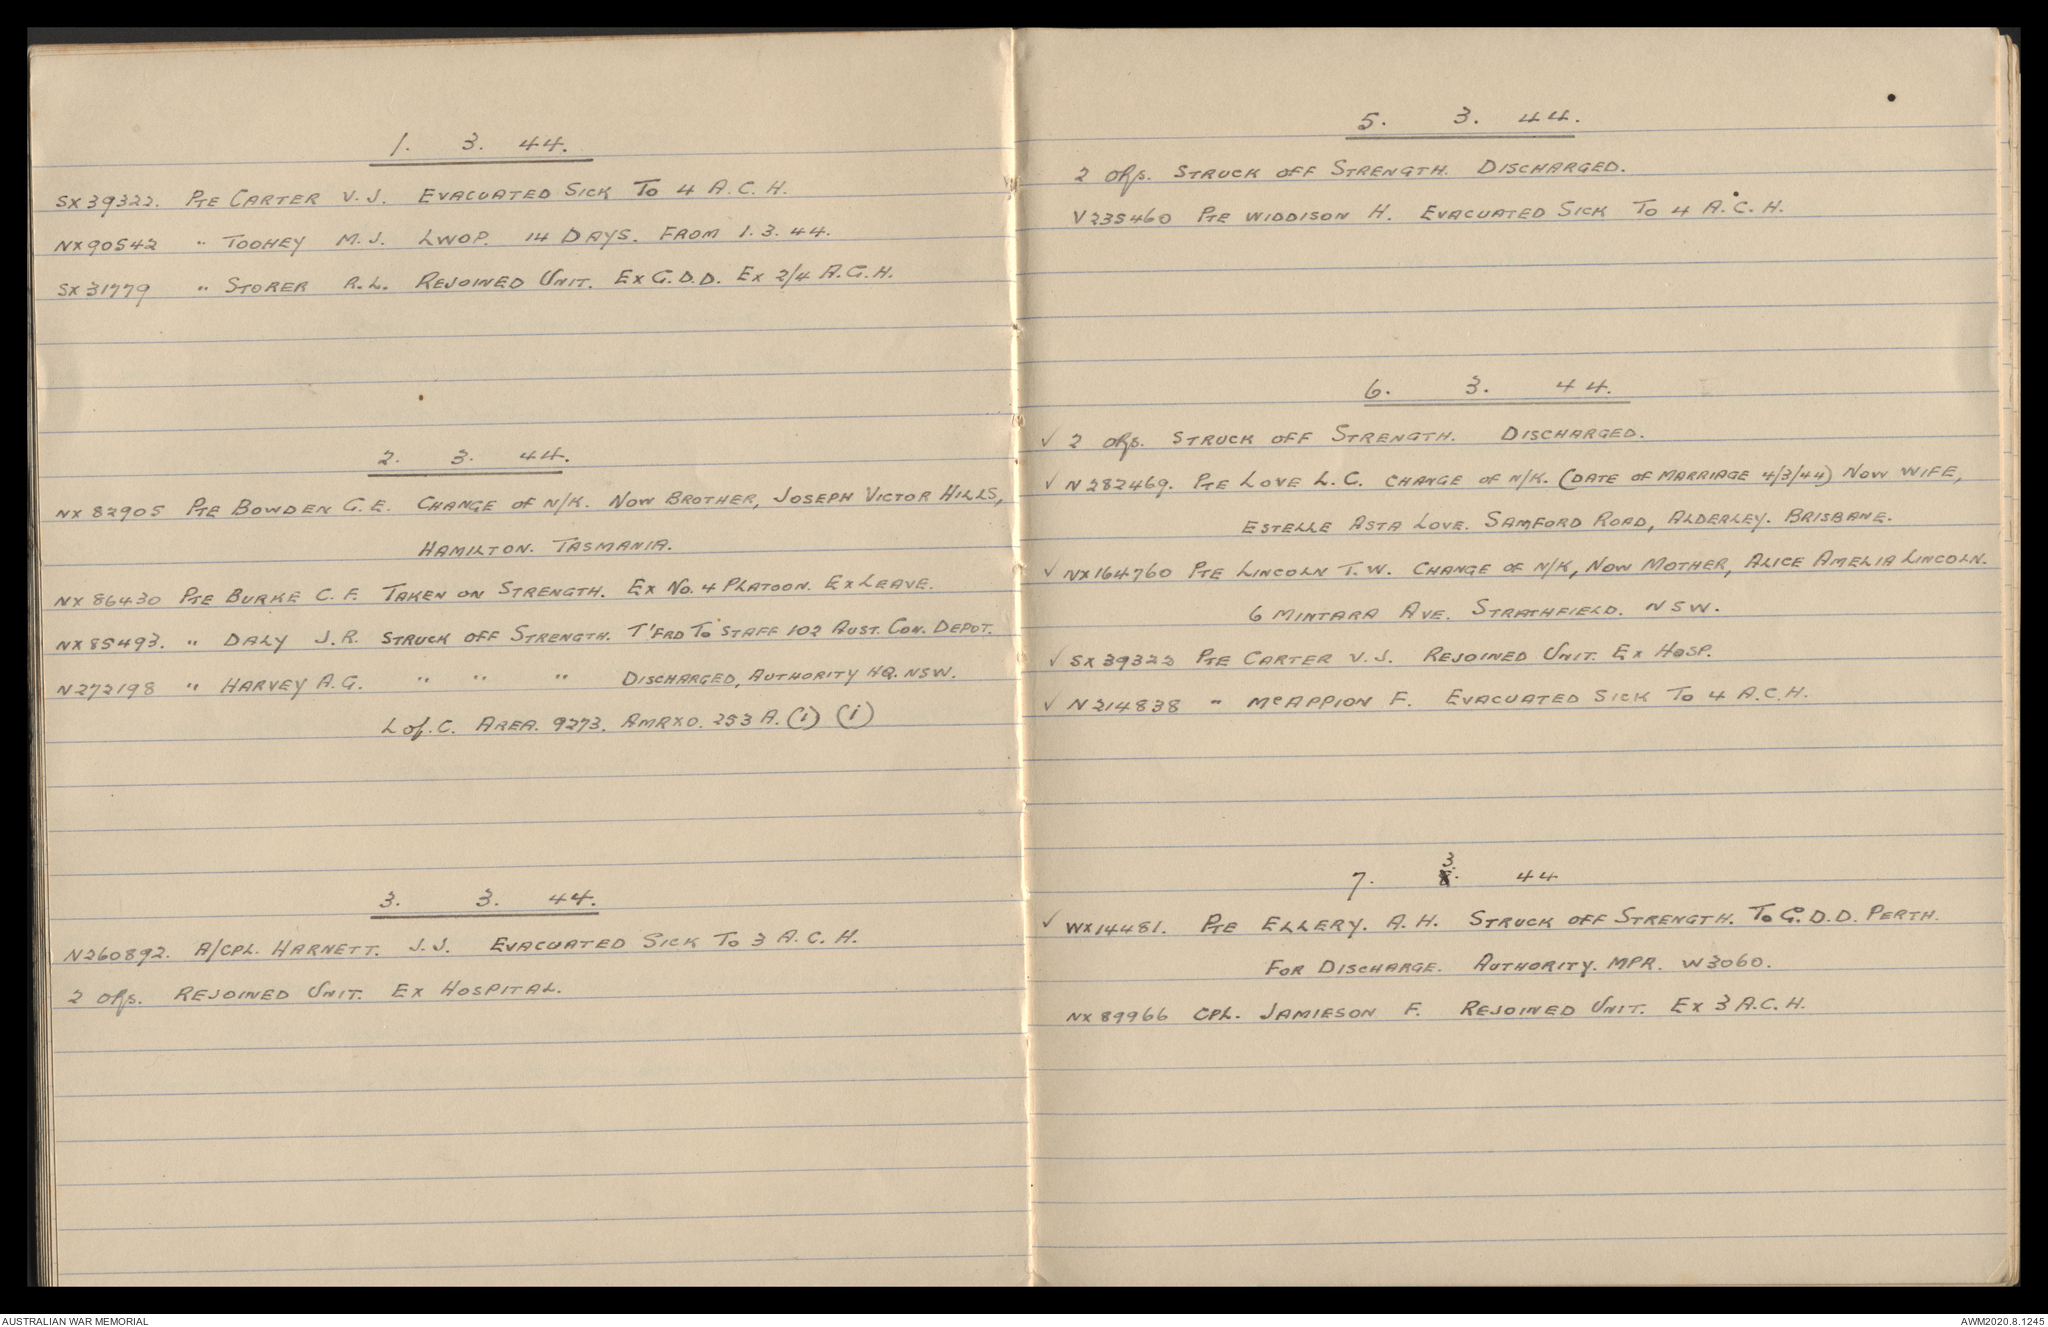 1. 3. 44.
SX39322. Pte CARTER V. J. EVACUATED SICK TO 4 A. C. H.
NX90542 " TOOHEY M. J. LWOP. 14 DAYS. FROM 1. 3. 44.
SX31779 " STORER R. L. REJOINED UNIT. EX G. D. D. EX 2/4 A. G. H.
2. 3. 44.
NX82905 PTE BOWDEN G. E. CHANGE OF N/K. NOW BROTHER, JOSEPH VICTOR HILLS,
HAMILTON. TASMANIA.
NX86430 PTE BURKE C. F. TAKEN ON STRENGTH. EX NO. 4 PLATOON. EX LEAVE.
NX85493. " DALY J. R. STRUCK OFF STRENGTH. T'FRD TO STAFF 102 AUST. CON. DEPOT.
N272198 " HARVEY A. G. " " " DISCHARGED, AUTHORITY HQ. NSW.
L of. C. AREA. 9273. AMR×O. 253 A. (i) (i)
3. 3. 44.
N260892. A/CPL. HARNETT. J. J. EVACUATED SICK TO 3 A. C. H.
2 ORs. REJOINED UNIT. EX HOSPITAL.
5. 3. 44.
2 ORs. STRUCK OFF STRENGTH. DISCHARGED.
V235460 PTE WIDDISON H. EVACUATED SICK TO 4 A. C. H.
6. 3. 44.
✓ 2 ORs. STRUCK OFF STRENGTH. DISCHARGED.
✓ N282469. PTE LOVE L. C. CHANGE OF N/K. (DATE OF MARRIAGE 4/3/44) NOW WIFE,
ESTELLE ASTA LOVE. SAMFORD ROAD, ALDERLEY. BRISBANE.
✓ NX164760 PTE LINCOLN T. W. CHANGE OF N/K, NOW MOTHER, ALICE AMELIA LINCOLN.
6 MINTARA AVE. STRATHFIELD. NSW.
✓ SX39322 PTE CARTER V. J. REJOINED UNIT. EX HOSP.
✓ N214838 " McAPPION F. EVACUATED SICK TO 4 A. C. H.
7. 3. 44
✓ WX14481. PTE ELLERY. A. H. STRUCK OFF STRENGTH. TO G. D. D. PERTH.
FOR DISCHARGE. AUTHORITY. MPR. W3060.
NX89966 CPL. JAMIESON F. REJOINED UNIT. EX 3 A. C. H.
AUSTRALIAN WAR MEMORIAL
AWM2020.8.1245